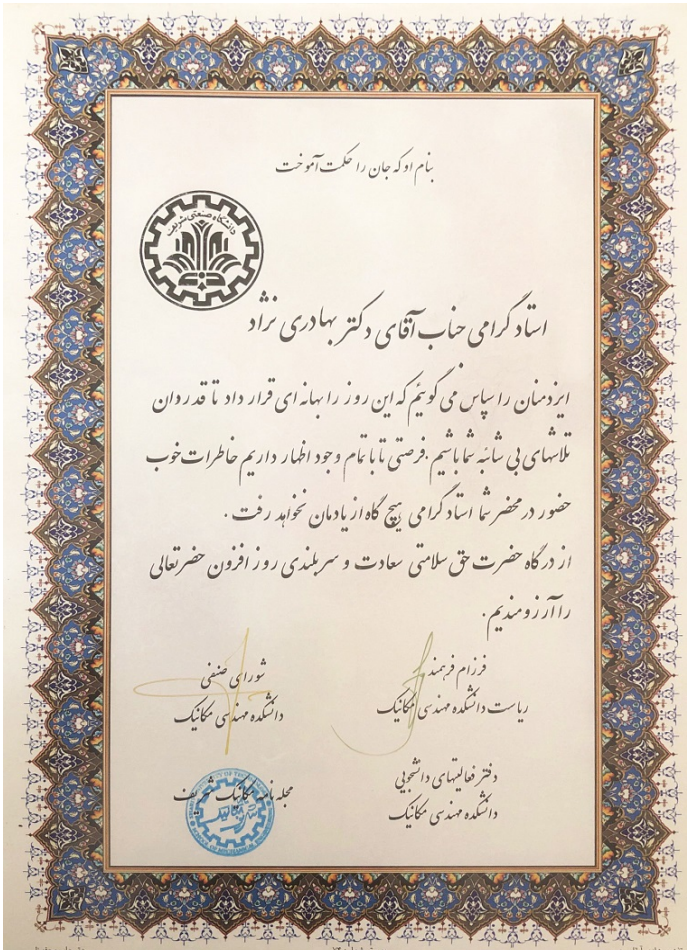 بنام او که جان را حکمت آموخت
دانشگاه صنعتی شریف
استاد گرامی جناب آقای دکتر بهادری نژاد
ایزدمنان را سپاس می گوییم که این روز را بهانه ای قرار داد تا قدردان
تلاشهای بی شائبه شما باشیم. فرصتی تا با تمام وجود اظهار داریم خاطرات خوب
حضور در محضر شما استاد گرامی هیچ گاه از یادمان نخواهد رفت.
از درگاه حضرت حق سلامتی سعادت و سربلندی روز افزون حضرتعالی
را آرزومندیم.
فرزام فرهمند
ریاست دانشکده مهندسی مکانیک
شورای صنفی
دانشکده مهندسی مکانیک
دفتر فعالیتهای دانشجویی
دانشکده مهندسی مکانیک
مجله نامه مکانیک شریف